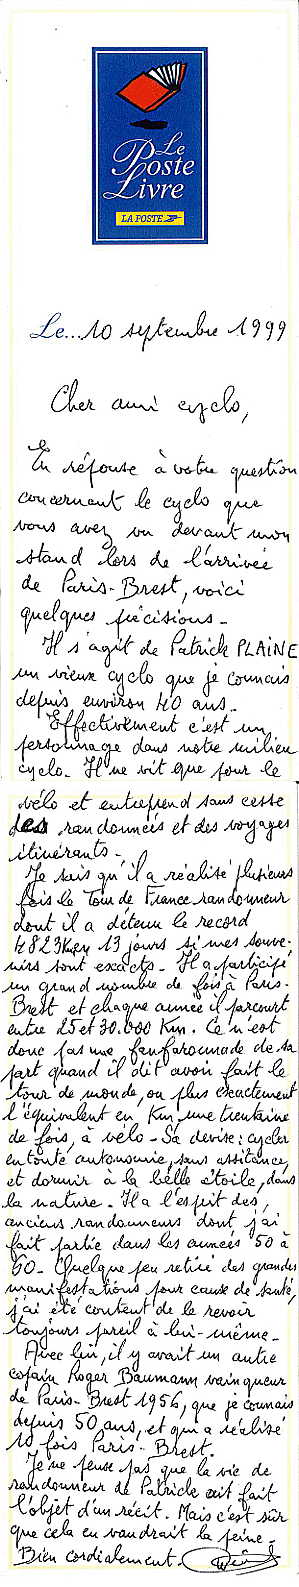 Le
Poste
Livre
LA POSTE
Le... 10 septembre 1999
Cher ami cyclo,
En réponse à votre question
concernant le cyclo que
vous avez vu devant mon
stand lors de l'arrivée
de Paris-Brest, voici
quelques précisions-
Il s'agit de Patrick PLAINE
un vieux cyclo que je connais
depuis environ 40 ans-
Effectivement c'est un
personnage dans notre milieu
cyclo- Il ne vit que pour le
vélo et entreprend sans cesse
des randonnées et des voyages
itinérants-
Je sais qu'il a réalisé plusieurs
fois le Tour de France randonneur
dont il a détenu le record
4823Km 13 jours si mes souve-
nirs sont exacts- Il a participé
un grand nombre de fois à Paris-
Brest et chaque année il parcourt
entre 25 et 30.000 Km. Ce n'est
donc pas une fanfaronnade de sa
part quand il dit avoir fait le
tour de monde, ou plus exactement
l'équivalent en Km, une trentaine
de fois, à vélo- Sa devise: cycler
en toute autonomie, sans assitance,
et dormir à la belle étoile, dans
la nature- Il a l'esprit des
anciens randonneurs dont j'ai
fait partie dans les années 50 à
60- Quelque peu retiré des grandes
manifestations pour cause de santé,
j'ai été content de le revoir
toujours pareil à lui-même-
Avec lui, il y avait un autre
copain Roger Baumann vainqueur
de Paris-Brest 1956, que je connais
depuis 50 ans, et qui a réalisé
10 fois Paris-Brest.
Je ne pense pas que la vie de
randonneur de Patrick ait fait
l'objet d'un récit. Mais c'est sûr
que cela en vaudrait la peine-
Bien cordialement.